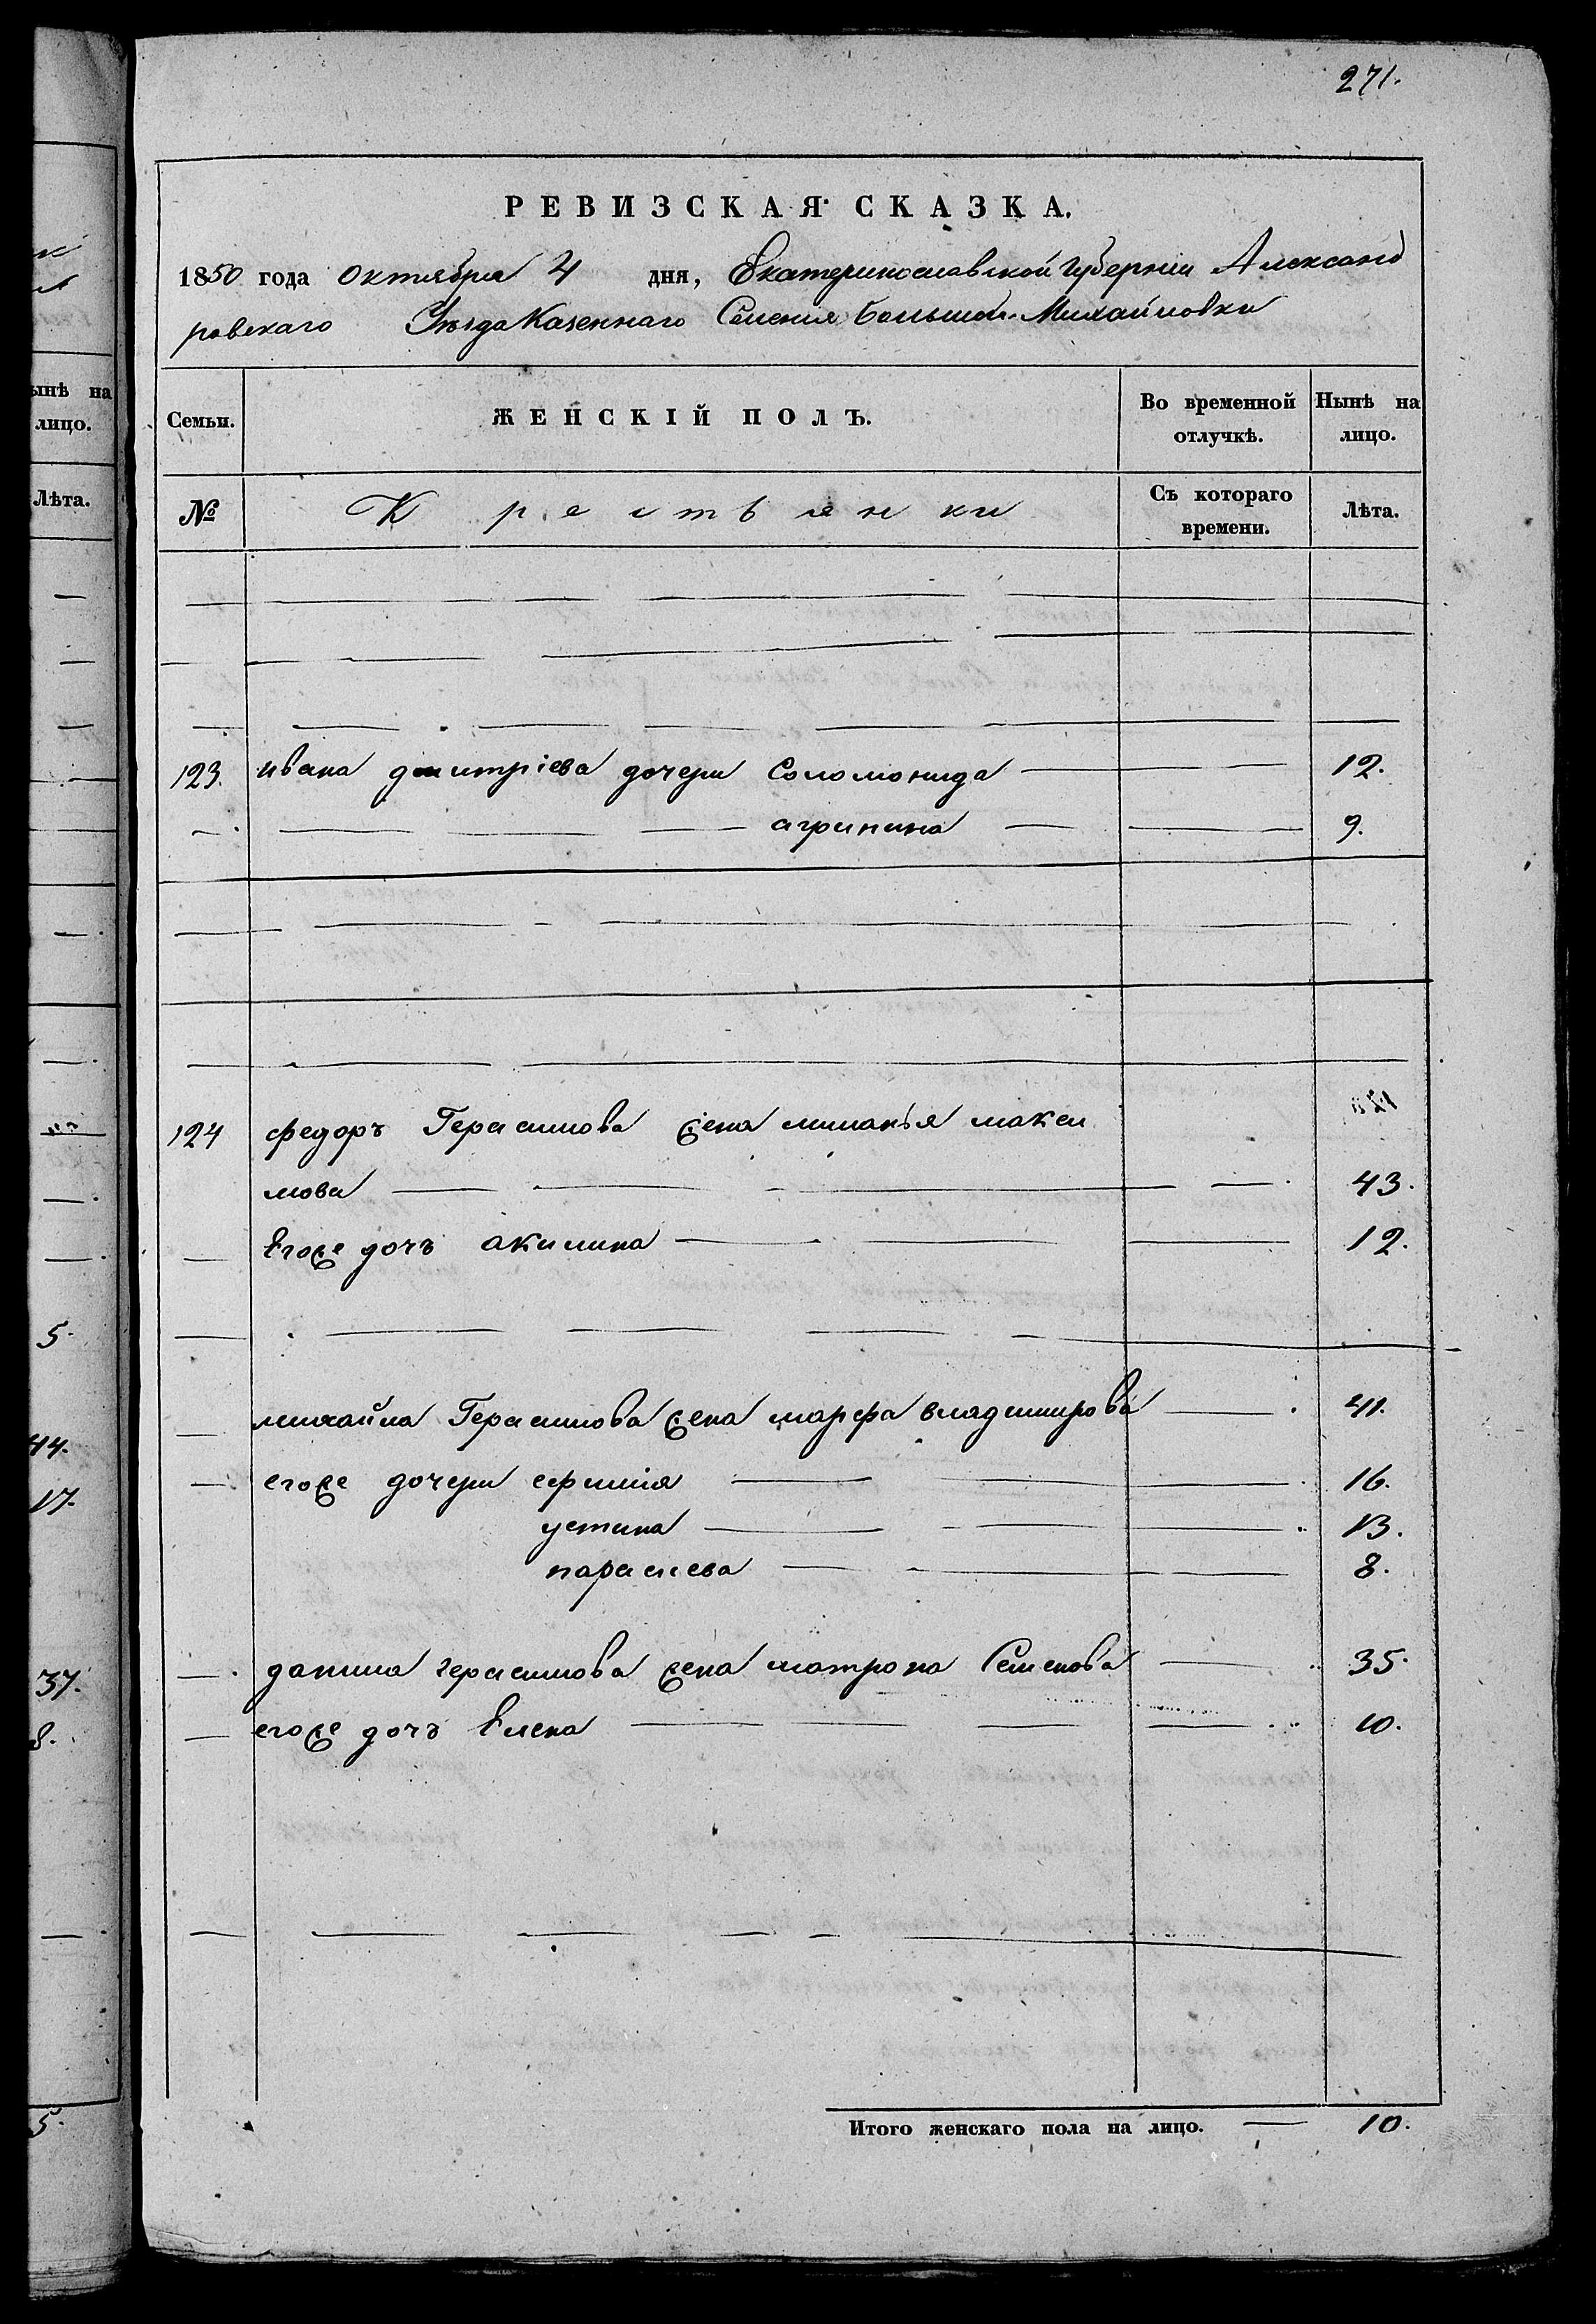 271.
РЕВИЗСКАЯ СКАЗКА.
1850 года октября 4 дня, Екатеринославской Губернии Александ
ровскаго Уѣзда Казеннаго Селения Большой Михайловки
Семьи. ЖЕНСКІЙ ПОЛЪ. Во временной отлучкѣ. Нынѣ на лицо.
№ Крестьянки Съ котораго времени. Лѣта.
123. ивана дмитріева дочери Соломонида 12.
агрипина 9.
124 федоръ Герасимова жена миланья макси
мова 43.
Егоже дочъ акилина 12.
михайла Герасимова жена марфа владимирова 41.
егоже дочери ефимія 16.
устина 13.
параскева 8.
данила герасимова жена матрона Семенова 35.
егоже дочъ Елена 10.
Итого женскаго пола на лицо. 10.
ынѣ на
лицо.
Лѣта.
5.
44.
17.
37.
8.
5.